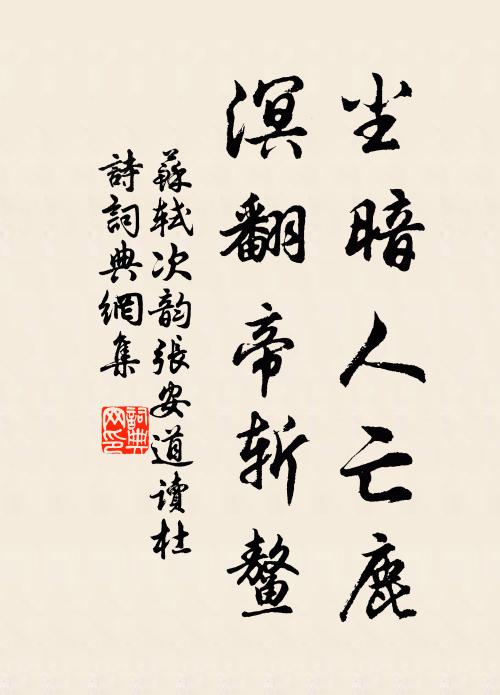 尘暗人亡鹿
溟翻帝斩鳌
蘇軾次韵張安道讀杜
詩詞典網集
詞典
网印